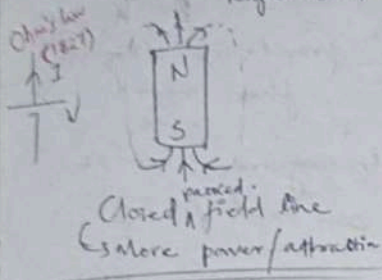 Ohm's law
(1827)
I
V
N
S
Closed packed field line
↳ More power/attraction